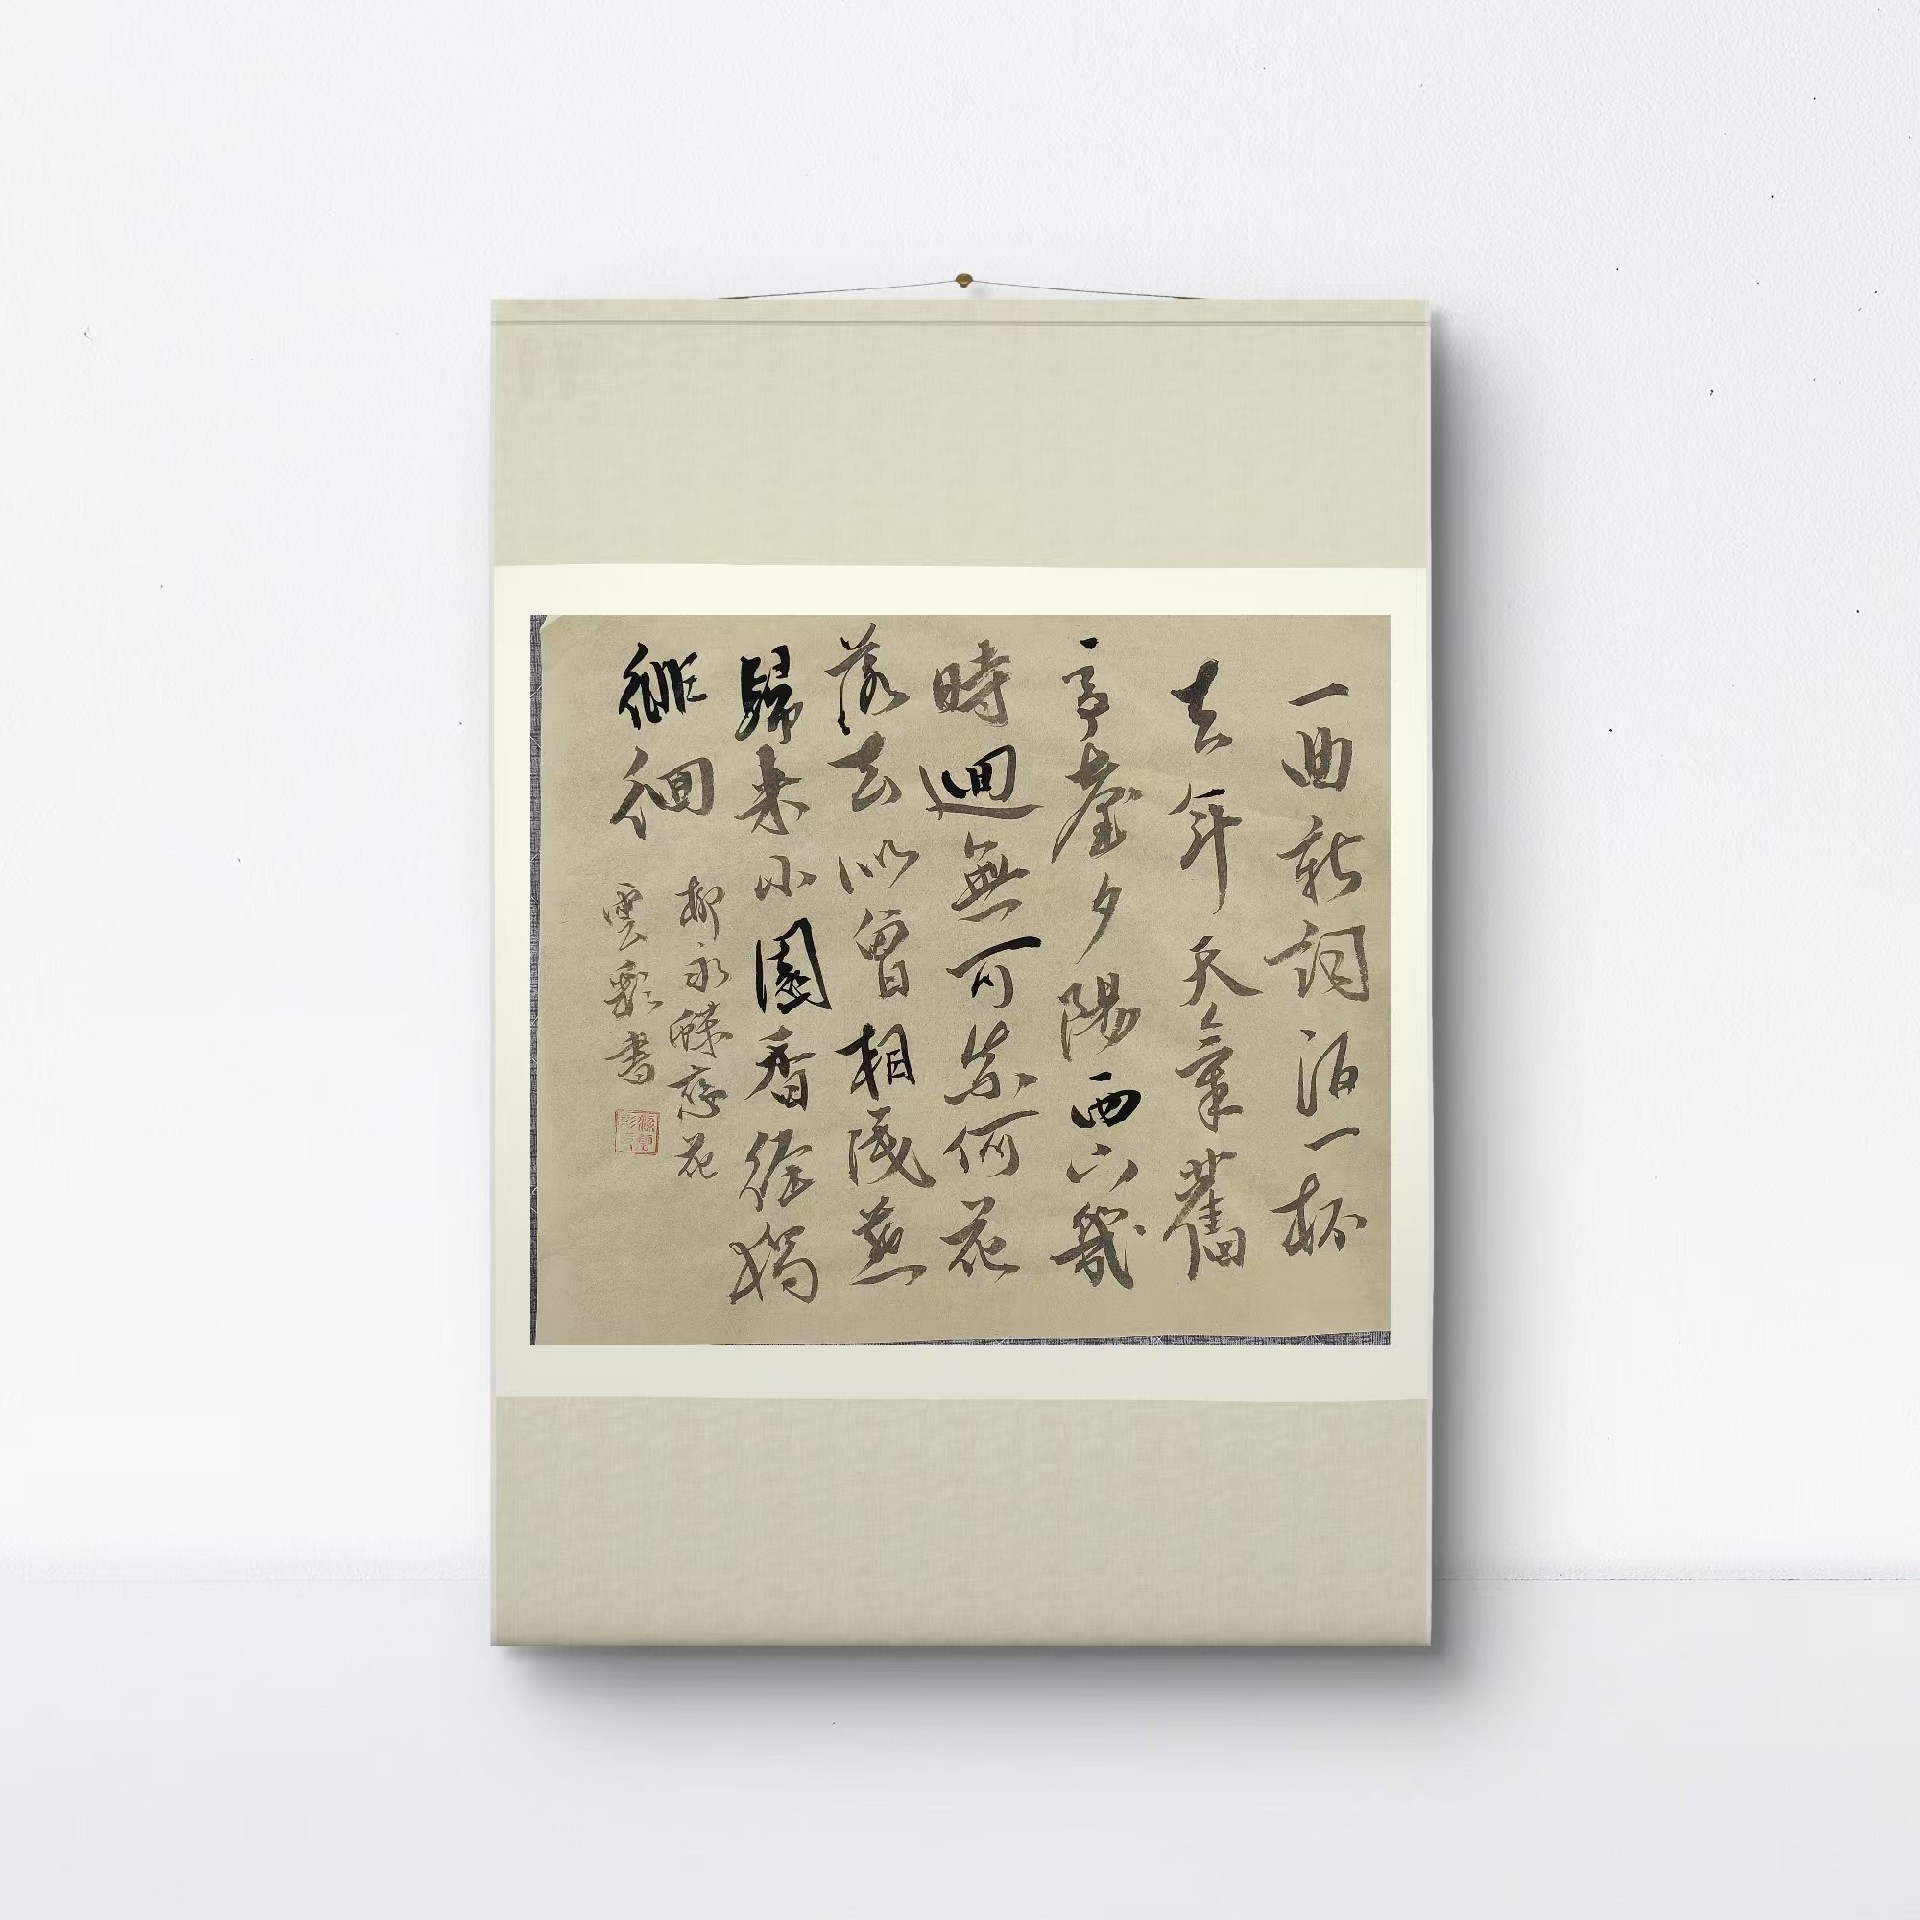 一曲新詞酒一杯
去年天氣舊
亭臺夕陽西下幾
時迴無可奈何花
落去似曾相識燕
歸来小園香徑獨
徘徊
柳永蝶恋花
雲彩書